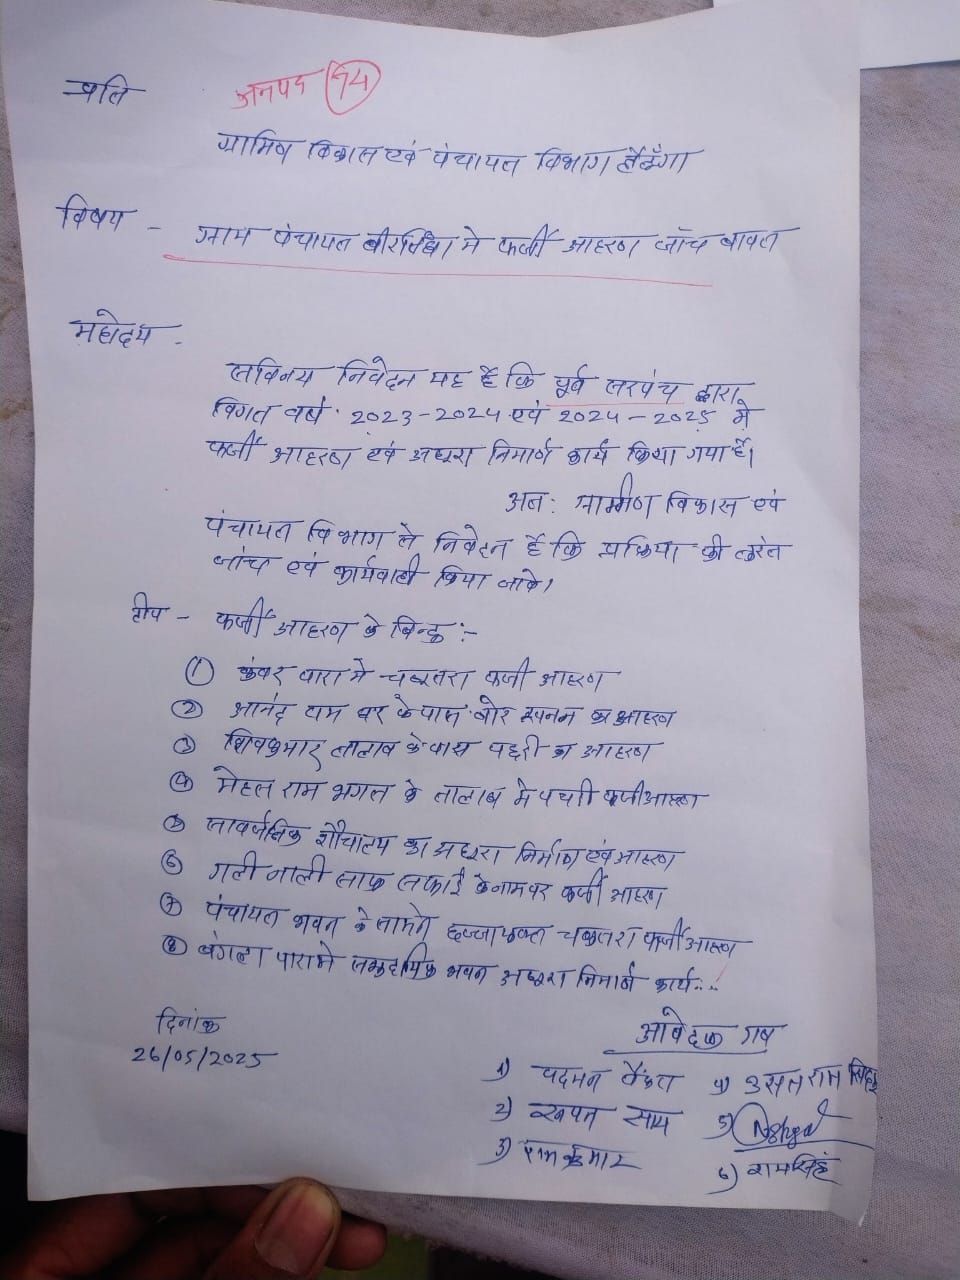 प्रति
जनपद (74)
ग्रामिण विकास एवं पंचायत विभाग लैलूँगा
विषय - ग्राम पंचायत बीरसिंघा मे फर्जी आहरण जाँच बावत
महोदय -
सविनय निवेदन यह है कि पूर्व सरपंच द्वारा
विगत वर्ष 2023-2024 एवं 2024-2025 मे
फर्जी आहरण एवं अधूरा निमार्ण कार्य किया गया है।
अतः ग्रामीण विकास एवं
पंचायत विभाग से निवेदन है कि प्रक्रिया की तुरंत
जांच एवं कार्यवाही किया जावे।
टीप - फर्जी आहरण के बिन्दु :-
(1) कंवर पारा मे चबूतरा फर्जी आहरण
(2) आनंद राम घर के पास बोर खनन का आहरण
(3) शिवकुमार तालाब के पास पचरी का आहरण
(4) मेहत्त राम भगत के तालाब मे पचरी फर्जी आहरण
(5) सार्वजनिक शौचालय का अधूरा निर्माण एवं आहरण
(6) गली नाली साफ सफाई के नाम पर फर्जी आहरण
(7) पंचायत भवन के सामने छज्जायुक्त चबूतरा फर्जी आहरण
(8) बंगला पारा मे समुदायिक भवन अधूरा निमार्ण कार्य...
दिनांक
26/05/2025
आवेदक गण
1) पदमन
2) साय
3) रामकुमार
4)
5)
6) रामसिंह